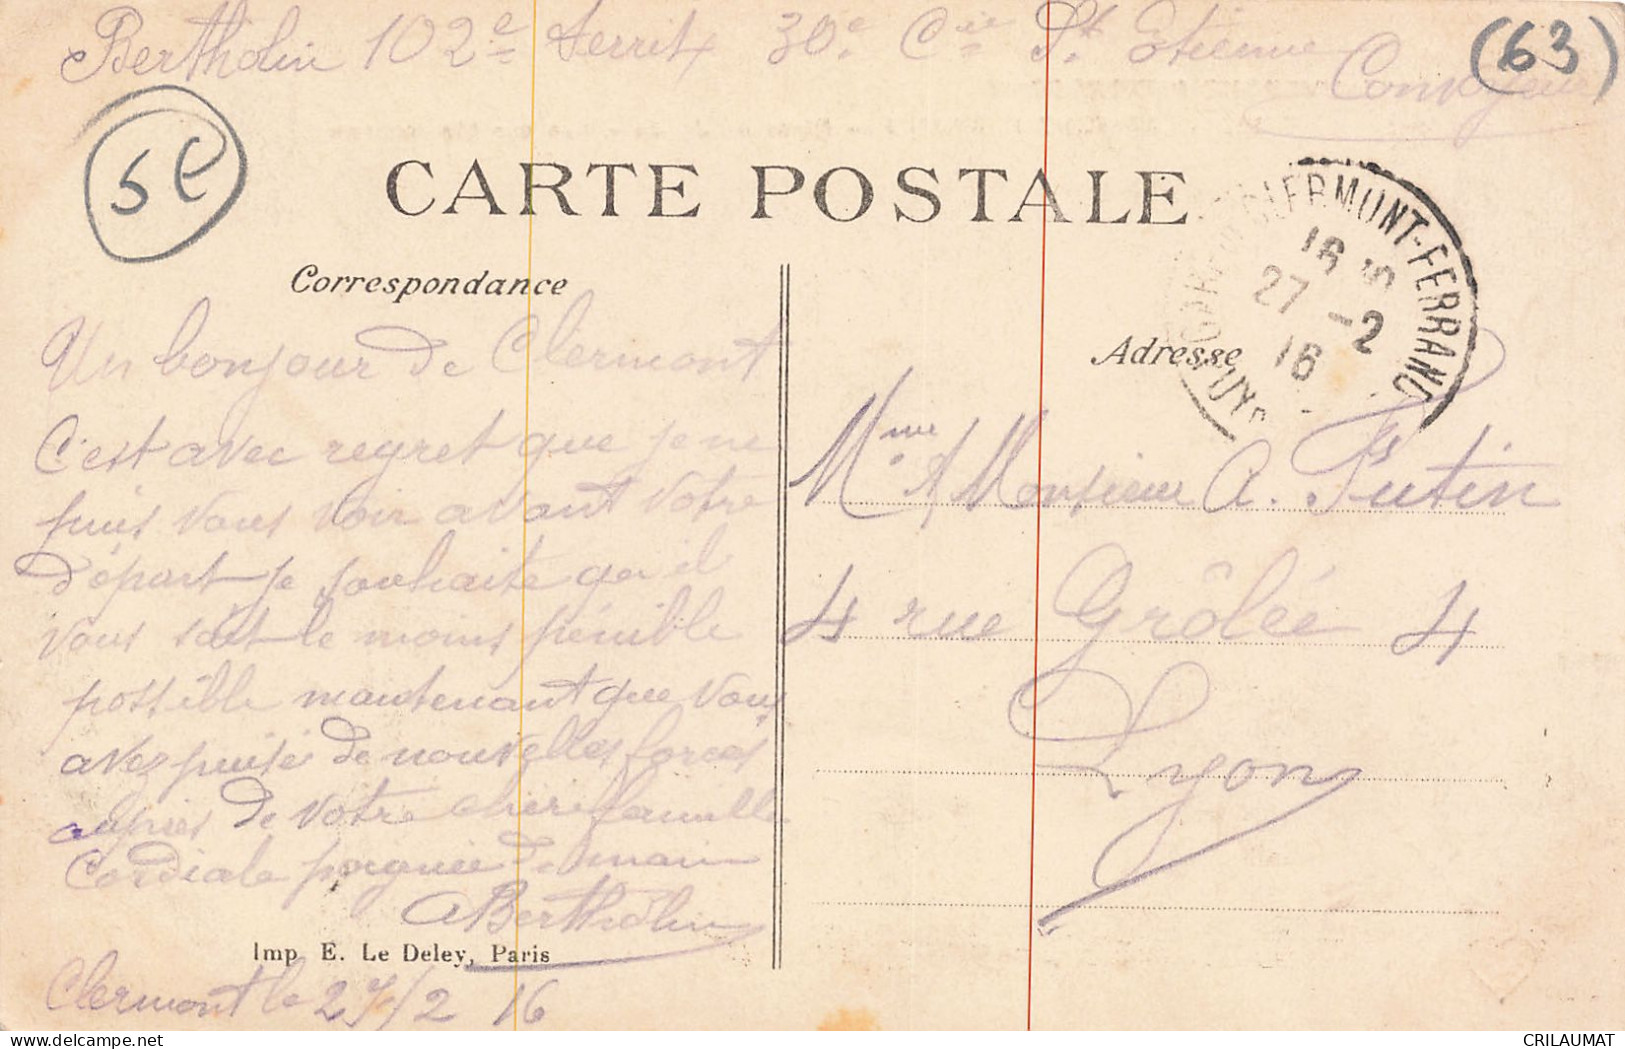 Bertholin 102e Territ 30e Cie St Etienne
Convoyeur
(63)
5€
CARTE POSTALE
CLERMONT-FERRAND
16
27 -2
16
PUY
Correspondance
Adresse
Un bonjour de Clermont
C'est avec regret que je ne
puis vous voir avant votre
départ je souhaite qu'il
vous soit le moins pénible
possible maintenant que vous
avez puisé de nouvelles forces
aupres de votre chère famille
Cordiale poignée de main
A Bertholin
Clermont le 27/2 16
Imp E. Le Deley, Paris
Mme & Monsieur A. Putin
4 rue Grôlée 4
Lyon
CRILAUMAT